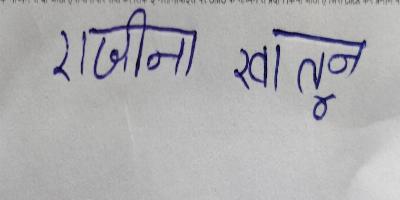 राजीना खातून